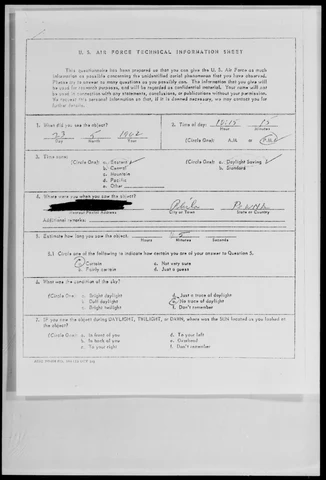 U. S. AIR FORCE TECHNICAL INFORMATION SHEET
This questionnaire has been prepared so that you can give the U. S. Air Force as much
information as possible concerning the unidentified aerial phenomenon that you have observed.
Please try to answer as many questions as you possibly can. The information that you give will
be used for research purposes, and will be regarded as confidential material. Your name will not
be used in connection with any statements, conclusions, or publications without your permission.
We request this personal information so that, if it is deemed necessary, we may contact you for
further details.
1. When did you see the object?
23 5 1962
Day Month Year
2. Time of day: 10:15 15
Hour Minutes
(Circle One): A.M. or P.M.
3. Time zone:
(Circle One): a. Eastern
b. Central
c. Mountain
d. Pacific
e. Other
(Circle One): a. Daylight Saving
b. Standard
4. Where were you when you saw the object?
Nearest Postal Address City or Town State or Country
Additional remarks:
5. Estimate how long you saw the object.
Hours Minutes Seconds
5.1 Circle one of the following to indicate how certain you are of your answer to Question 5.
a. Certain c. Not very sure
b. Fairly certain d. Just a guess
6. What was the condition of the sky?
(Circle One): a. Bright daylight d. Just a trace of daylight
b. Dull daylight e. No trace of daylight
c. Bright twilight f. Don't remember
7. IF you saw the object during DAYLIGHT, TWILIGHT, or DAWN, where was the SUN located as you looked at
the object?
(Circle One): a. In front of you d. To your left
b. In back of you e. Overhead
c. To your right f. Don't remember